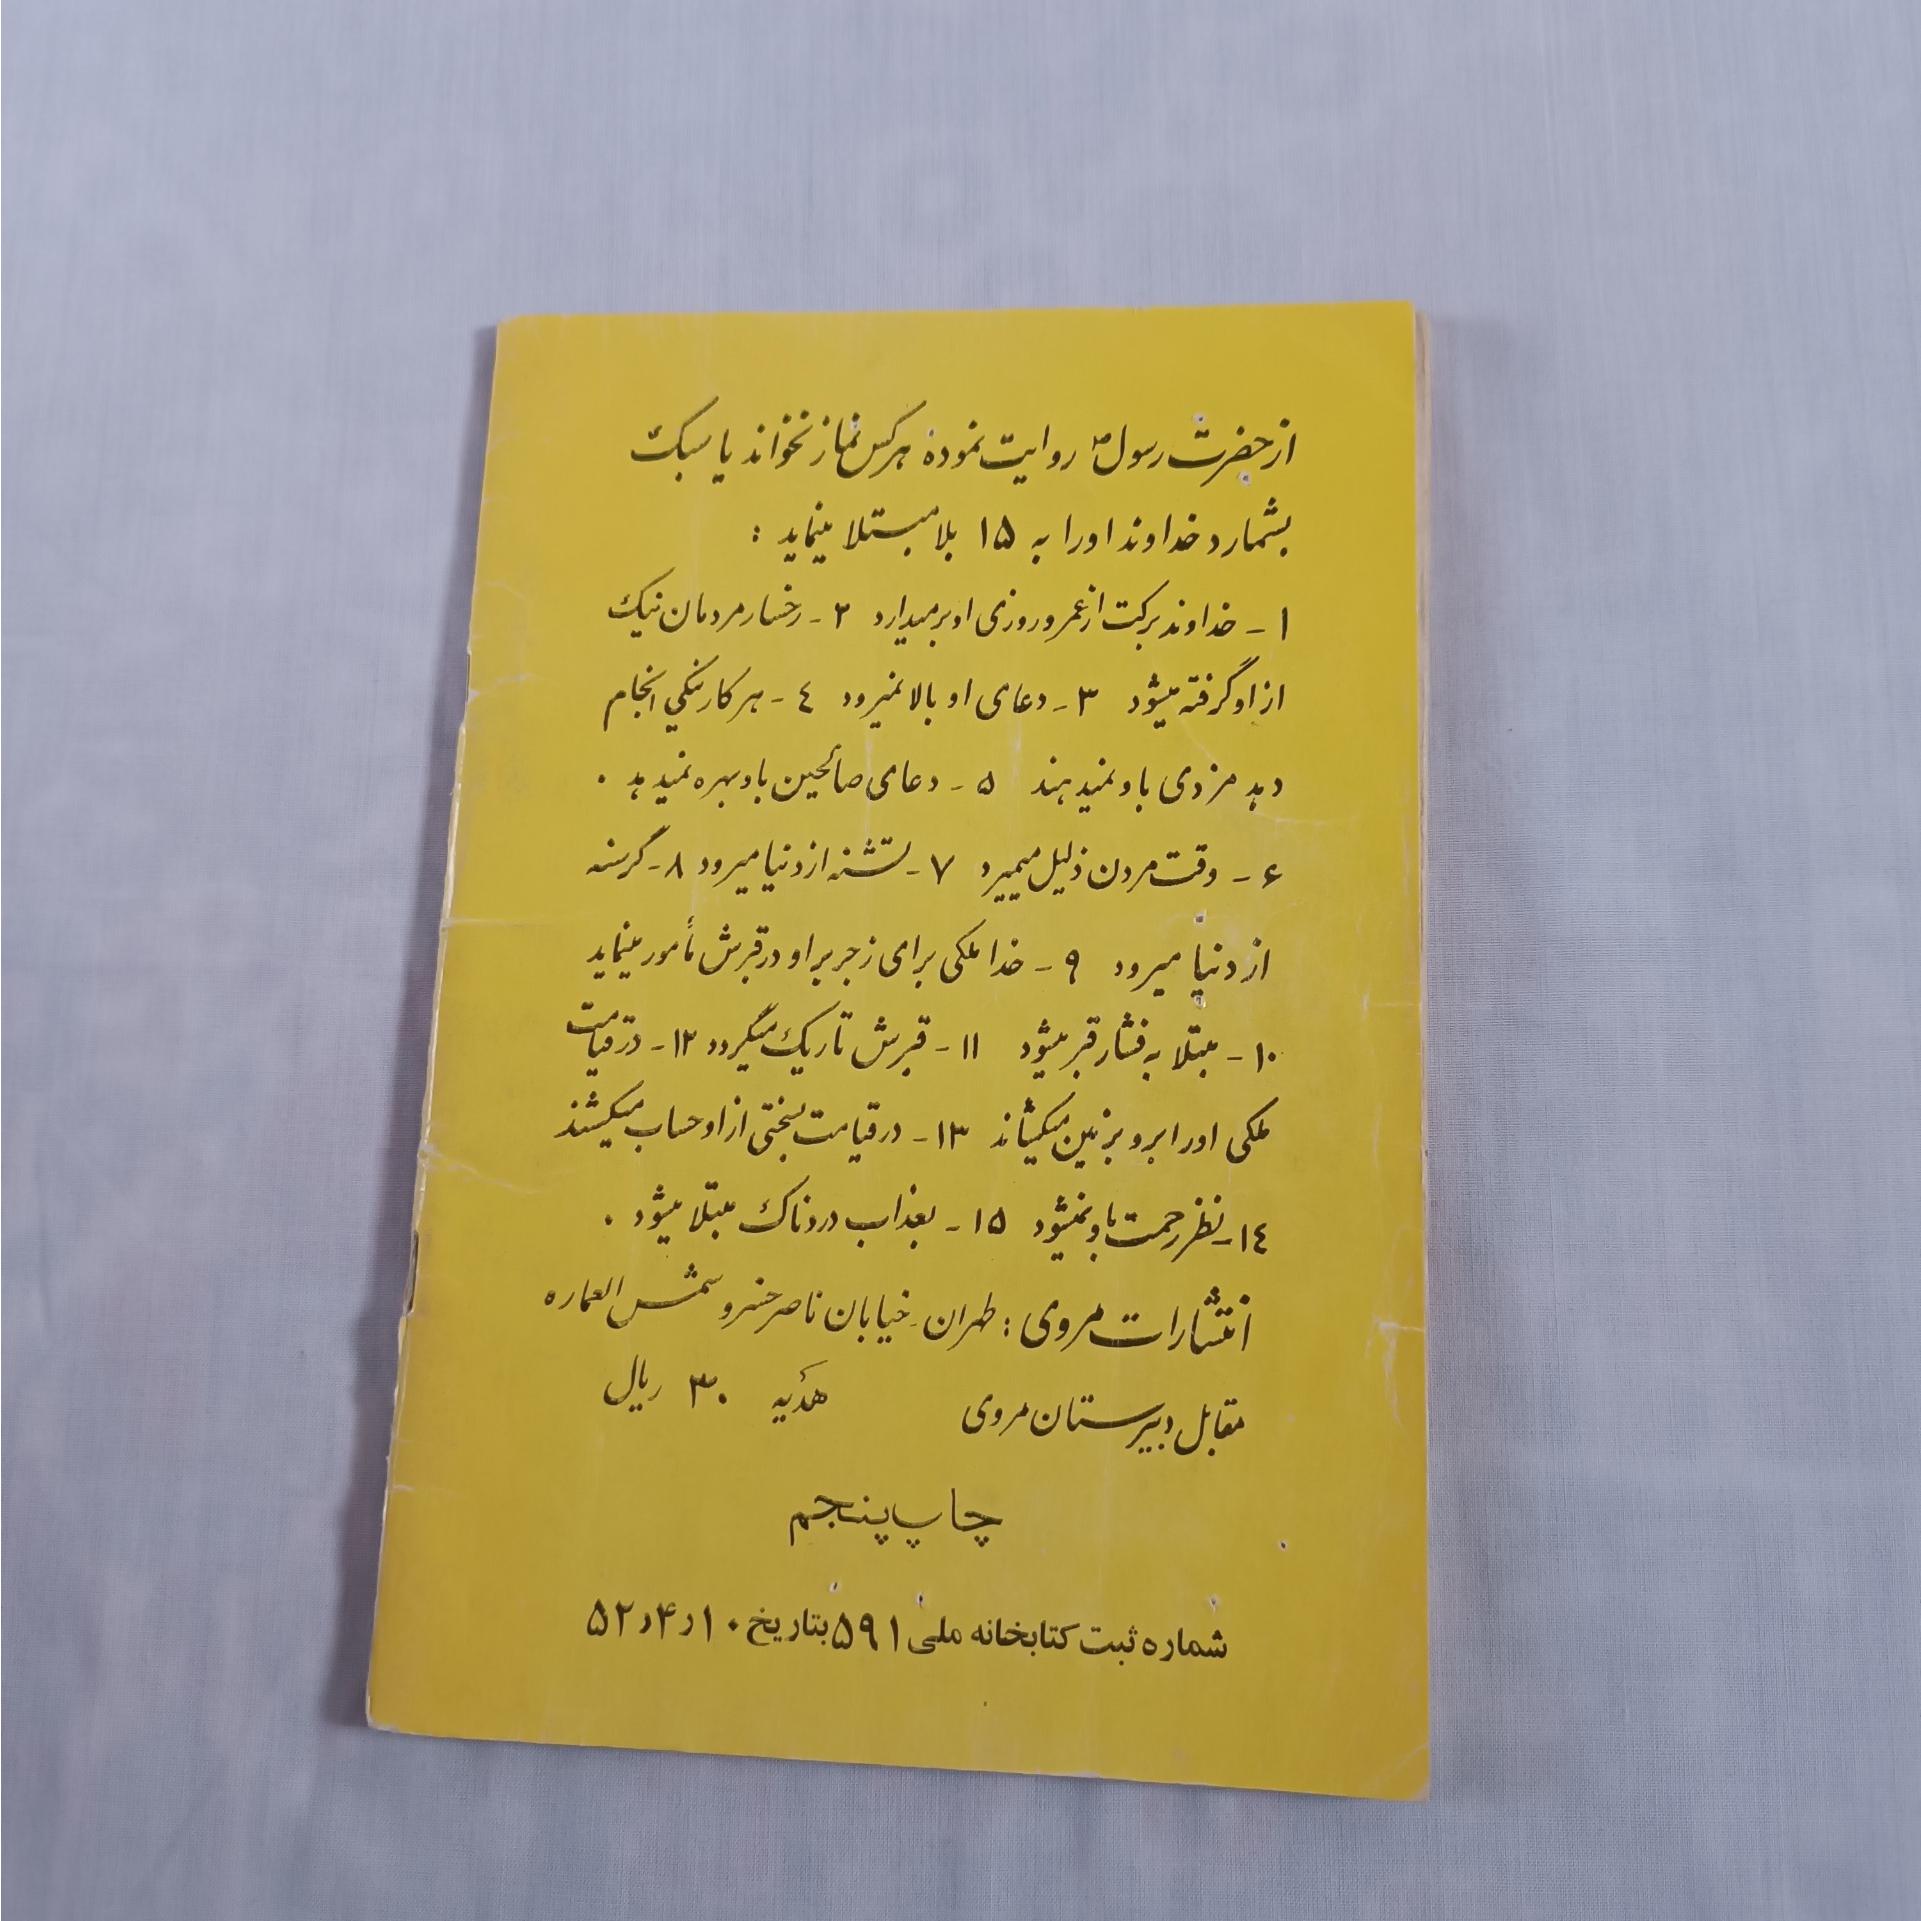 از حضرت رسول ص روایت نموده هرکس نماز نخواند یا سبک
بشمارد خداوند او را به ۱۵ بلا مبتلا مینماید :
۱ - خداوند برکت از عمر و روزی او برمیدارد ۲ - رخسار مردمان نیک
از او گرفته میشود ۳ - دعای او بالا نمیرود ٤ - هر کار نیکی انجام
دهد مزدی باو نمیدهند ۵ - دعای صالحین باو بهره نمیدهد .
۶ - وقت مردن ذلیل میمیرد ۷ - تشنه از دنیا میرود ۸ - گرسنه
از دنیا میرود ۹ - خدا ملکی برای زجر بر او در قبرش مأمور مینماید
۱۰ - مبتلا به فشار قبر میشود ۱۱ - قبرش تاریک میگردد ۱۲ - در قیامت
ملکی او را برو بزمین میکشاند ۱۳ - در قیامت بسختی از او حساب میکشند
۱٤ - نظر رحمت باو نمیشود ۱۵ - بعذاب دردناک مبتلا میشود .
انتشارات مروی : طهران . خیابان ناصر خسرو شمس العماره
مقابل دبیرستان مروی هدیه ۳۰ ریال
چاپ پنجم
شماره ثبت کتابخانه ملی ۵۹۱ بتاریخ ۱۰ر۴ر۵۲